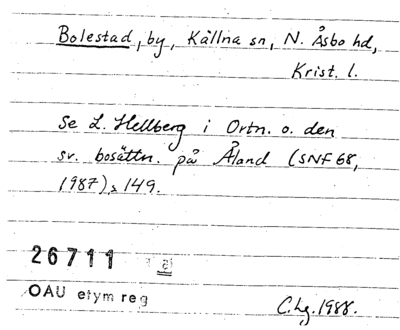 Bolestad, by, Källna sn, N. Åsbo hd,
Krist. l.
Se L. Hellberg i Ortn. o. den
sv. bosättn. på Åland (SNF 68,
1987), s 149.
26711
OAU etym reg
C.Lg. 1988.